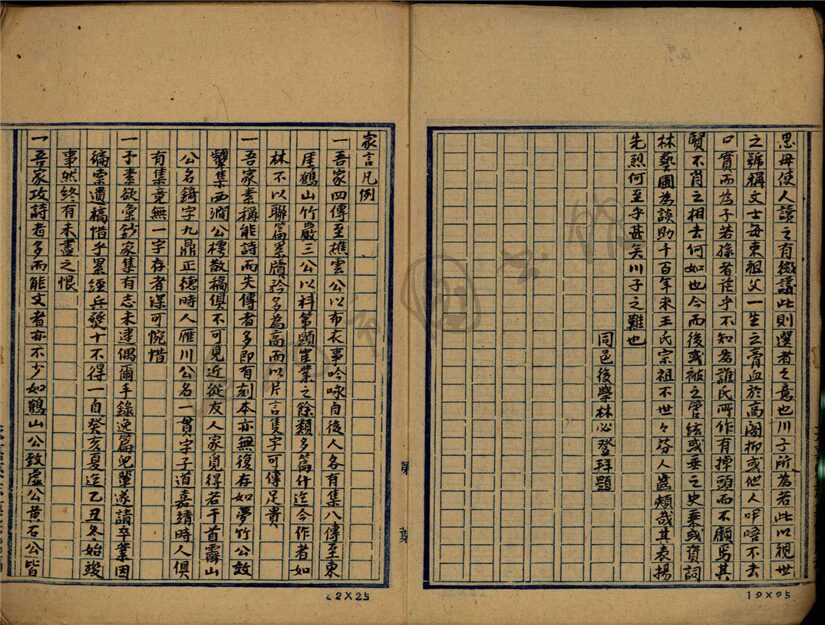 思毋使人讀之有微議此則選者之意也川子所為若此以視世
之號稱文士每束祖父一生之膏血於高閣抑或他人吚唔不去
口實而為子若孫者読乎不知為誰氏所作有掉頭而不顧焉其
賢不肖之相去何如也今而後或被之管絃或垂之史乗或資詞
林藝圃為談助千百年來王氏宗祖不世々芬人齒頰哉其表揚
先烈何至乎甚矣川子之難也
同邑後學林必登拜題
家言凡例
一吾家四傳至樵雲公以布衣事吟咏自後人各有集八傳至東
厓鶴山竹嚴三公以科第顯崔業之餘類多篇什迄今作者如
林不以聯篇累牘矜多為高而以片言隻字可傳足貴
一吾家素稱能詩而失傳者多即有刻本亦無復存如夢竹公效
顰集西澗公樓散稿俱不可見近從友人家覓得若干首霽山
公名錡字九鼎正德時人雁川公名一貫字子道嘉靖時人俱
有集竟無一字存者深可惋惜
一予素欲彙鈔家集有志未逮偶爾手錄逸篇兒輩遂請卒業因
編索遺稿惜乎累經兵燹十不得一自癸亥夏迄乙丑冬始竣
事然終有未盡之恨
一吾家攻詩者多而能文者亦不少如鶴山公致虛公黃石公皆
第 葉
12×25
19×25